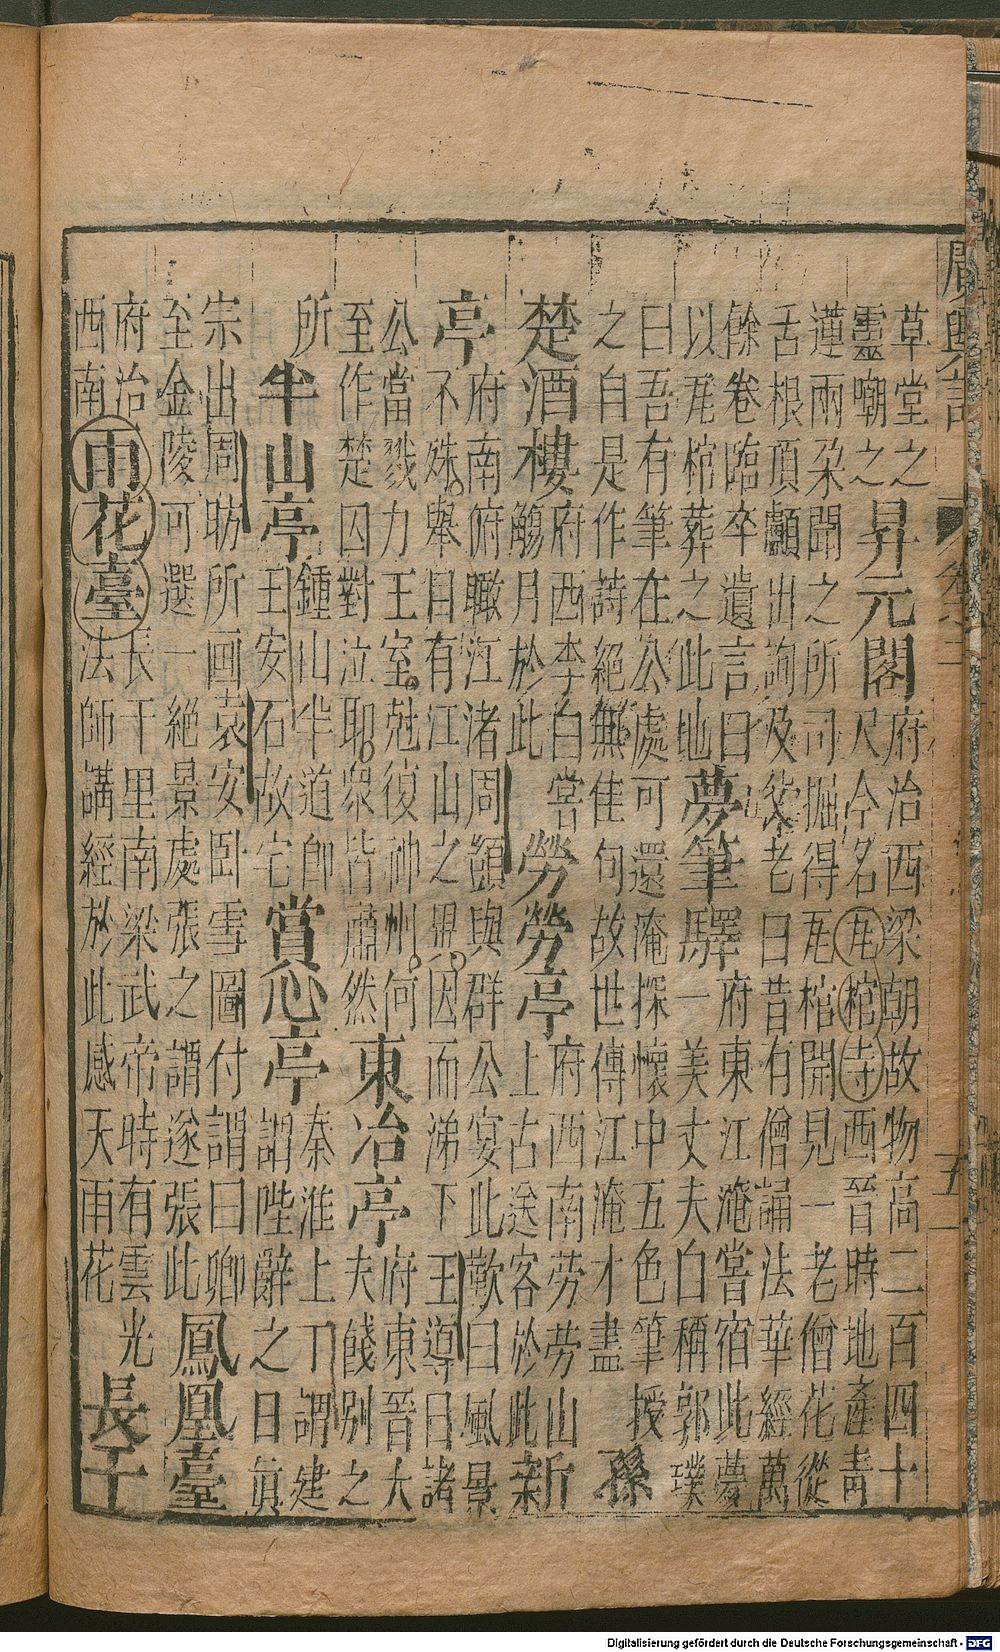 廣輿記 卷之二 五
草堂之
靈嘲之
昇元閣
府治西梁朝故物高二百四十
尺今名瓦棺寺西晉時地產青
蓮兩朶聞之所司掘得瓦棺開見一老僧花從
舌根頂顱出詢及父老曰昔有僧誦法華經萬
餘卷臨卒遺言曰
以瓦棺葬之此地
夢筆驛
府東江淹嘗宿此夢
一美丈夫自稱郭璞
曰吾有筆在公處可還淹探懷中五色筆授
之自是作詩絕無佳句故世傳江淹才盡
孫
楚酒樓
府西李白嘗
觴月於此
勞勞亭
府西南勞勞山
上古送客於此
新
亭
府南俯瞰江渚周顗與群公宴此歎曰風景
不殊舉目有江山之異因而涕下王導曰諸
公當戮力王室尅復神州何
至作楚囚對泣耶眾皆肅然
東冶亭
府東晉大
夫餞別之
所
半山亭
鍾山半道即
王安石故宅
賞心亭
秦淮上丁謂建
謂陛辭之日眞
宗出周昉所画袁安卧雪圖付謂曰卿
至金陵可選一絕景處張之謂遂張此
鳳凰臺
府治
西南
雨花臺
長干里南梁武帝時有雲光
法師講經於此感天雨花
長干
Digitalisierung gefördert durch die Deutsche Forschungsgemeinschaft - DFG